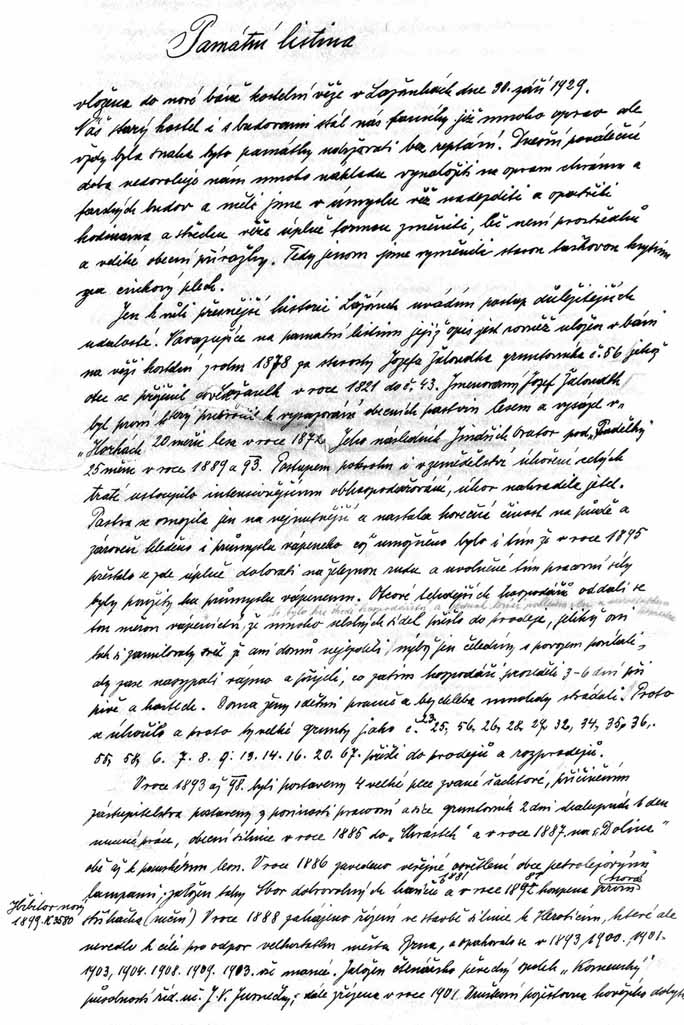 Památní listina
vložena do nové báně kostelní věže v Lažánkách dne 30. září 1929.
Náš starý kostel i s budovami stál nás farníky již mnoho oprav ale
vždy byla snaha tyto památky udržovati bez reptání. Dnešní poválečná
doba nedovoluje nám mnoho nákladu vynaložiti na opravu chrámu a
farních budov a měli jsme v úmyslu věž nadezditi a opatřiti
hodinama a střechu věže úplně formou změniti, leč není prostředků
a veliké obecní přirážky. Tedy jenom jsme vyměnili starou taškovou krytinu
za cinkový plech.
Jen k vůli přesnější historii Lažánek uvádím postup důležitějších
událostí. Navazujíce na pamatní listinu jejíž opis jest rovněž uložen v báni
na věži kostelní z roku 1878 za starosty Josefa Žaloudka gruntovníka č. 56 jehož
otec se přiženil do Lažánek v roce 1821 do č. 43. Jmenovaný Josef Žaloudek
byl první který přikročil k vysazování obecních pastvin lesem a vysázel v
„Horkách" 20 měřic lesa v roce 1872. Jeho následník Jindřich Orator pod „Padělky"
25 měřic v roce 1889 a 93. Postupem pokroku i v zemědělství úhoření celých
tratí ustoupilo intensivnějšímu obhospodařování, úhor nahradila jetel.
Pastva se omezila jen na nejnutnější a nastala horečná činost na půdě a
zároveň hleděno i průmyslu vápeneho což umožněno bylo i tím že v roce 1895
přestalo se zde úplně dolovati na železnou rudu a uvolněné tím pracovní síly
byly použity ku průmyslu vápennému. Otcové tehdejších hospodářů oddali se
tou měrou vápenictví, že mnoho selských sídel přišlo do prodeje, jelikož oni
tak si zamilovali svět že ani domů nejezdili nýbrž jen čeledíny s povozem posílali,
aby zase naložili vápno a přijeli, co zatím hospodáři proseděli 3-6 dní při
pivě a kartech. Doma ženy s dětmi pracně a bez chleba mnohdy strádali. Proto
se úhořilo a proto ty velké grunty jako č. 23, 25, 56, 26, 28, 27, 32, 34, 35, 36,
55, 58, 6. 7. 8. 9. 13. 14. 16. 20. 67. přišli do prodejů a rozprodejů.
V roce 1893 až 98. byli postaveny 4 velké pece zvané šachtové, přičiněním
zastupitelstva postaveny z povinosti pracovní a sice gruntovník 2 dni chalupník 1 den
nucené práce, obecní silnice v roce 1885 do „Chrástek" a v roce 1887. na „Dolina"
obě až k panskému lesu. V roce 1886 zavedeno veřejné osvětlení obce petrolejovými
lampami; založen tehdy Sbor dobrovolných hasičů 1881 a v roce 1887 koupena první (nová)
stříkačka (ruční). V roce 1888 zahájeno řízení ve stavbě silnice k Heroticím, které ale
nevedlo k cíli pro odpor velkostatku města Brna, a opakovalo se v 1893, 1900. 1901.
1903, 1904. 1908. 1909. 1913. vše marné. Založen čtenářsko pěvecký spolek „Komenský"
působností říd. uč. J. V. Jumečky; dále zřízena v roce 1901. Vzájemná pojišťovna hovězího dobytka
Hřbitov nový
1899. K 3580